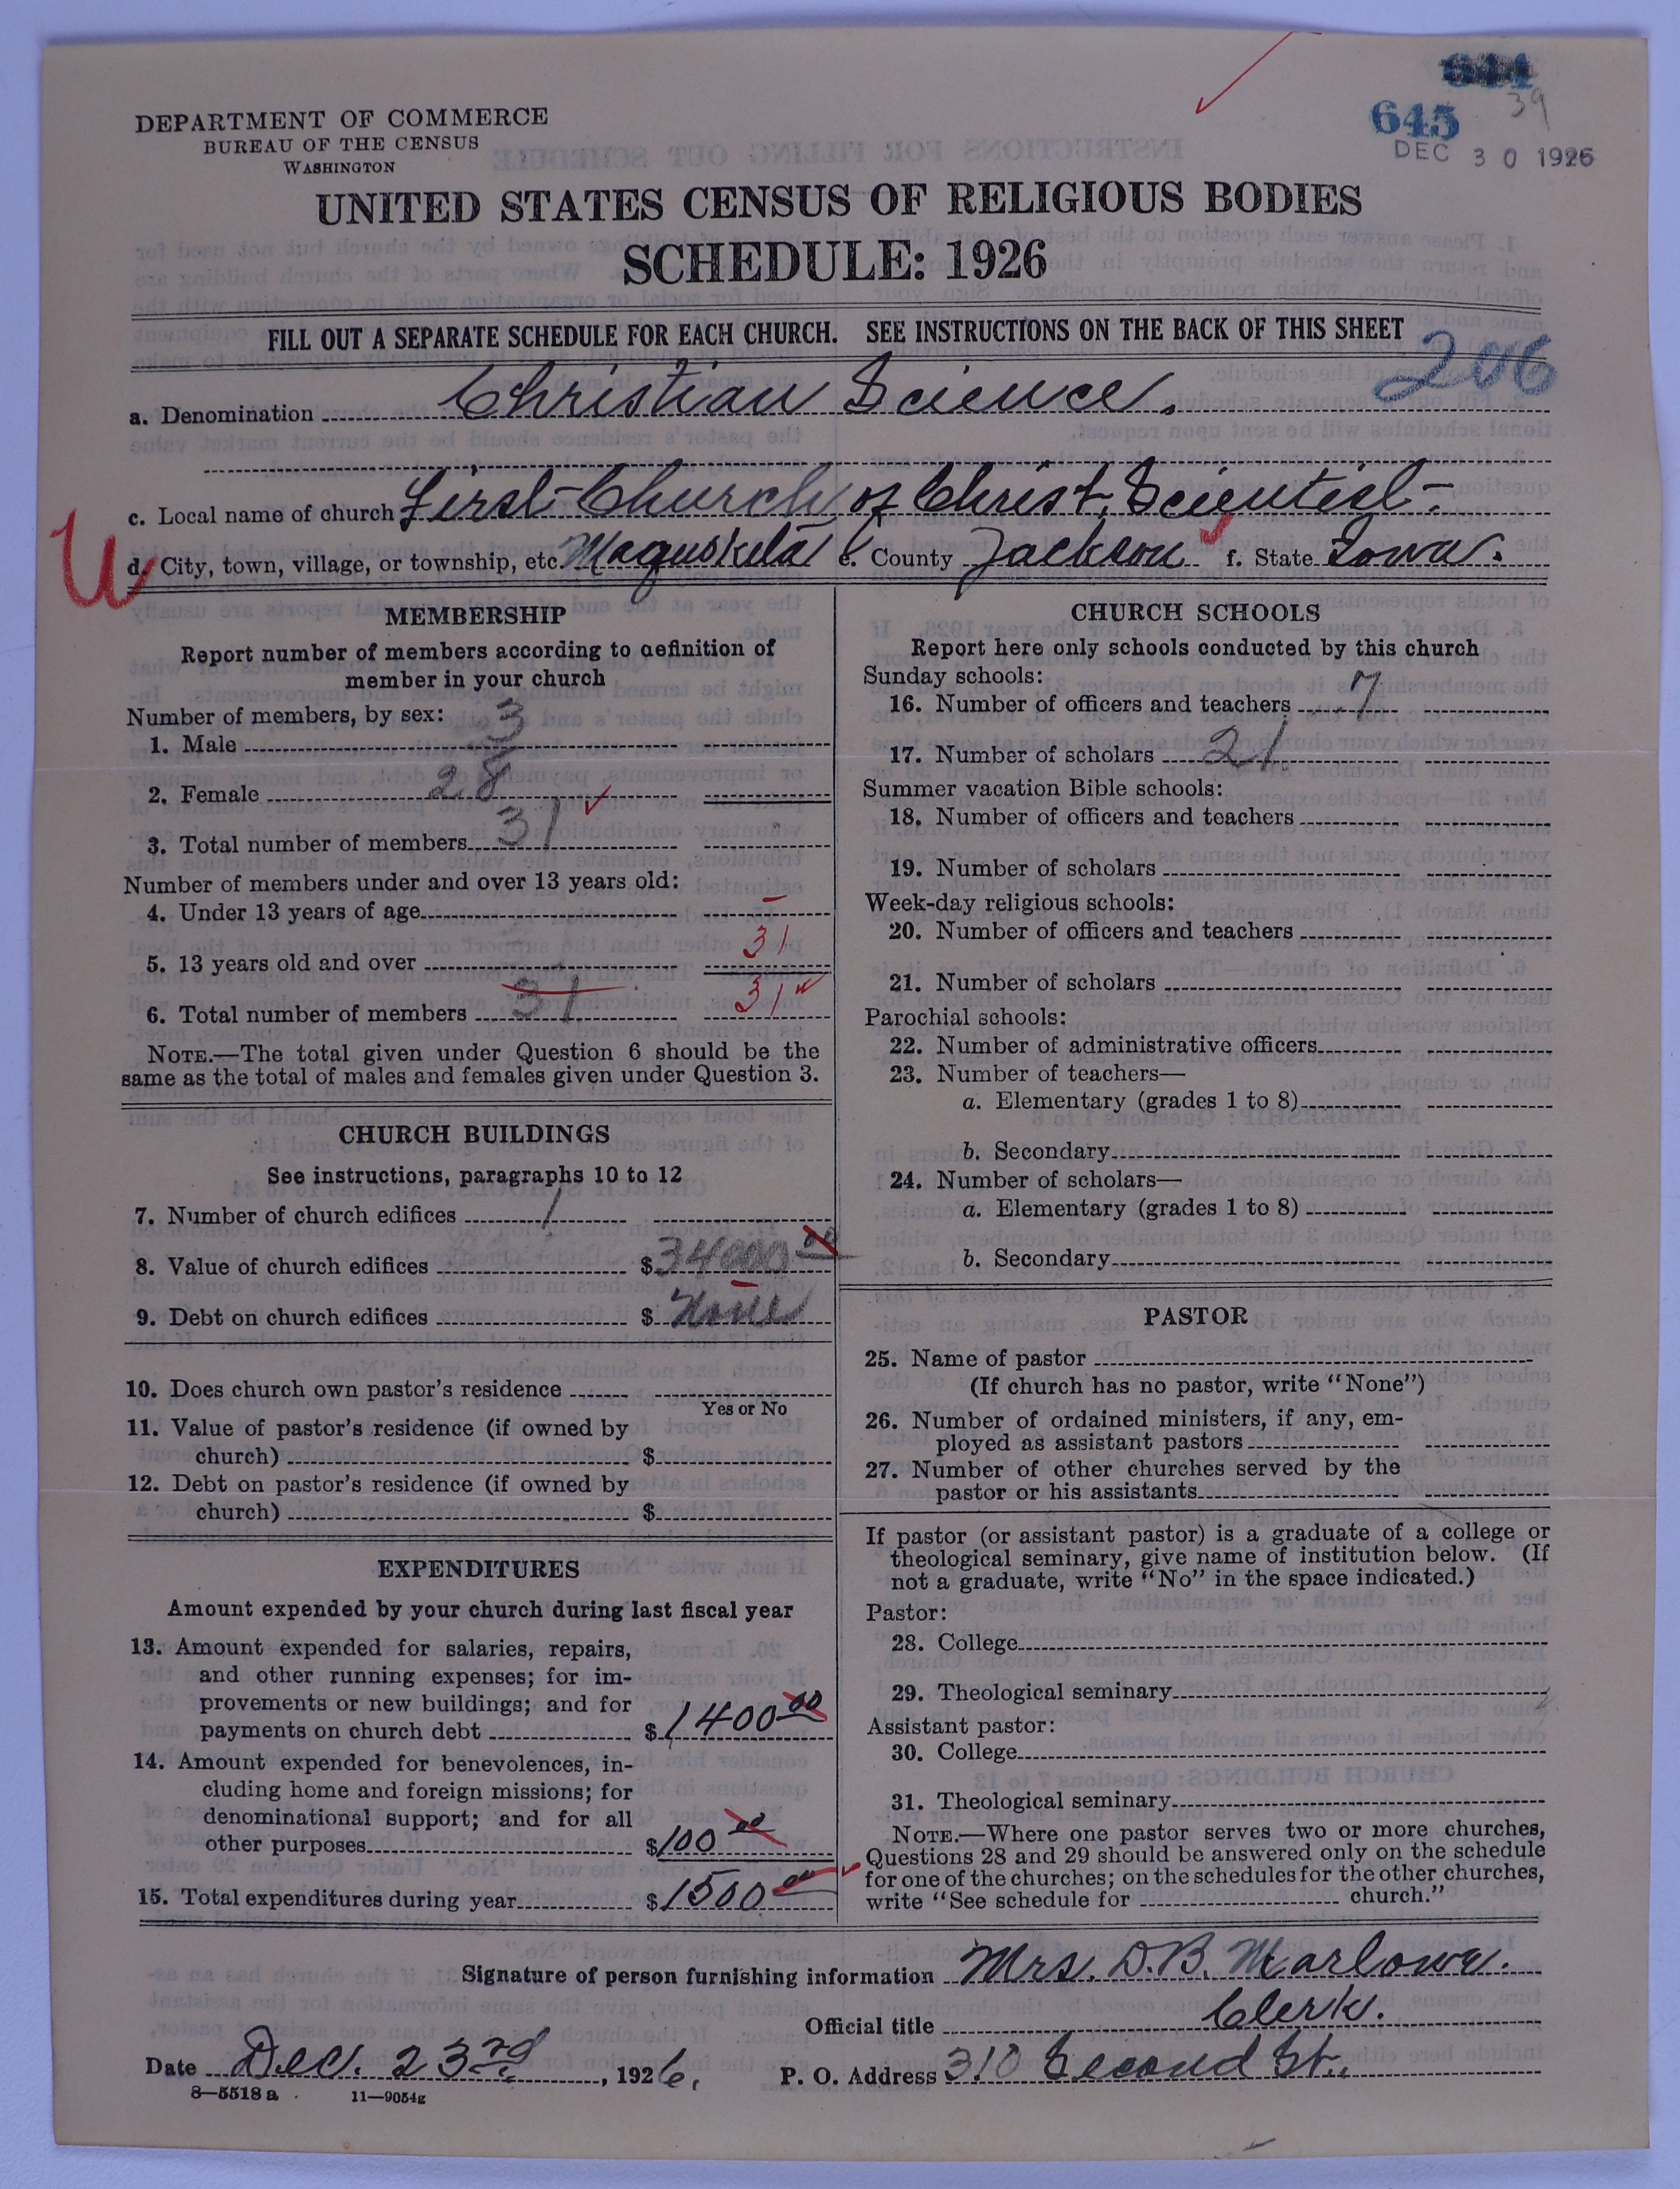 644
645
39
DEC 30 1926
DEPARTMENT OF COMMERCE
BUREAU OF THE CENSUS
WASHINGTON
UNITED STATES CENSUS OF RELIGIOUS BODIES
SCHEDULE: 1926
FILL OUT A SEPARATE SCHEDULE FOR EACH CHURCH. SEE INSTRUCTIONS ON THE BACK OF THIS SHEET
206
a. Denomination Christian Science.
c. Local name of church First Church of Christ, Scientist
d. City, town, village, or township, etc. Maquoketa e. County Jackson f. State Iowa.
U
MEMBERSHIP
Report number of members according to definition of
member in your church
Number of members, by sex:
1. Male 3
2. Female 28
3. Total number of members 31
Number of members under and over 13 years old:
4. Under 13 years of age –
5. 13 years old and over 31
6. Total number of members 31 31
NOTE.—The total given under Question 6 should be the
same as the total of males and females given under Question 3.
CHURCH BUILDINGS
See instructions, paragraphs 10 to 12
7. Number of church edifices 1
8. Value of church edifices $34000 00
9. Debt on church edifices $ None
10. Does church own pastor's residence
Yes or No
11. Value of pastor's residence (if owned by
church) $
12. Debt on pastor's residence (if owned by
church) $
EXPENDITURES
Amount expended by your church during last fiscal year
13. Amount expended for salaries, repairs,
and other running expenses; for im-
provements or new buildings; and for
payments on church debt $1400 00
14. Amount expended for benevolences, in-
cluding home and foreign missions; for
denominational support; and for all
other purposes $100 00
15. Total expenditures during year $1500 00
CHURCH SCHOOLS
Report here only schools conducted by this church
Sunday schools:
16. Number of officers and teachers 7
17. Number of scholars 21
Summer vacation Bible schools:
18. Number of officers and teachers
19. Number of scholars
Week-day religious schools:
20. Number of officers and teachers
21. Number of scholars
Parochial schools:
22. Number of administrative officers
23. Number of teachers—
a. Elementary (grades 1 to 8)
b. Secondary
24. Number of scholars—
a. Elementary (grades 1 to 8)
b. Secondary
PASTOR
25. Name of pastor
(If church has no pastor, write "None")
26. Number of ordained ministers, if any, em-
ployed as assistant pastors
27. Number of other churches served by the
pastor or his assistants
If pastor (or assistant pastor) is a graduate of a college or
theological seminary, give name of institution below. (If
not a graduate, write "No" in the space indicated.)
Pastor:
28. College
29. Theological seminary
Assistant pastor:
30. College
31. Theological seminary
NOTE.—Where one pastor serves two or more churches,
Questions 28 and 29 should be answered only on the schedule
for one of the churches; on the schedules for the other churches,
write "See schedule for church."
Signature of person furnishing information Mrs. D.B. Marlowe.
Official title Clerk.
Date Dec. 23rd, 1926. P. O. Address 310 Second St.
8—5518 a 11—9054g